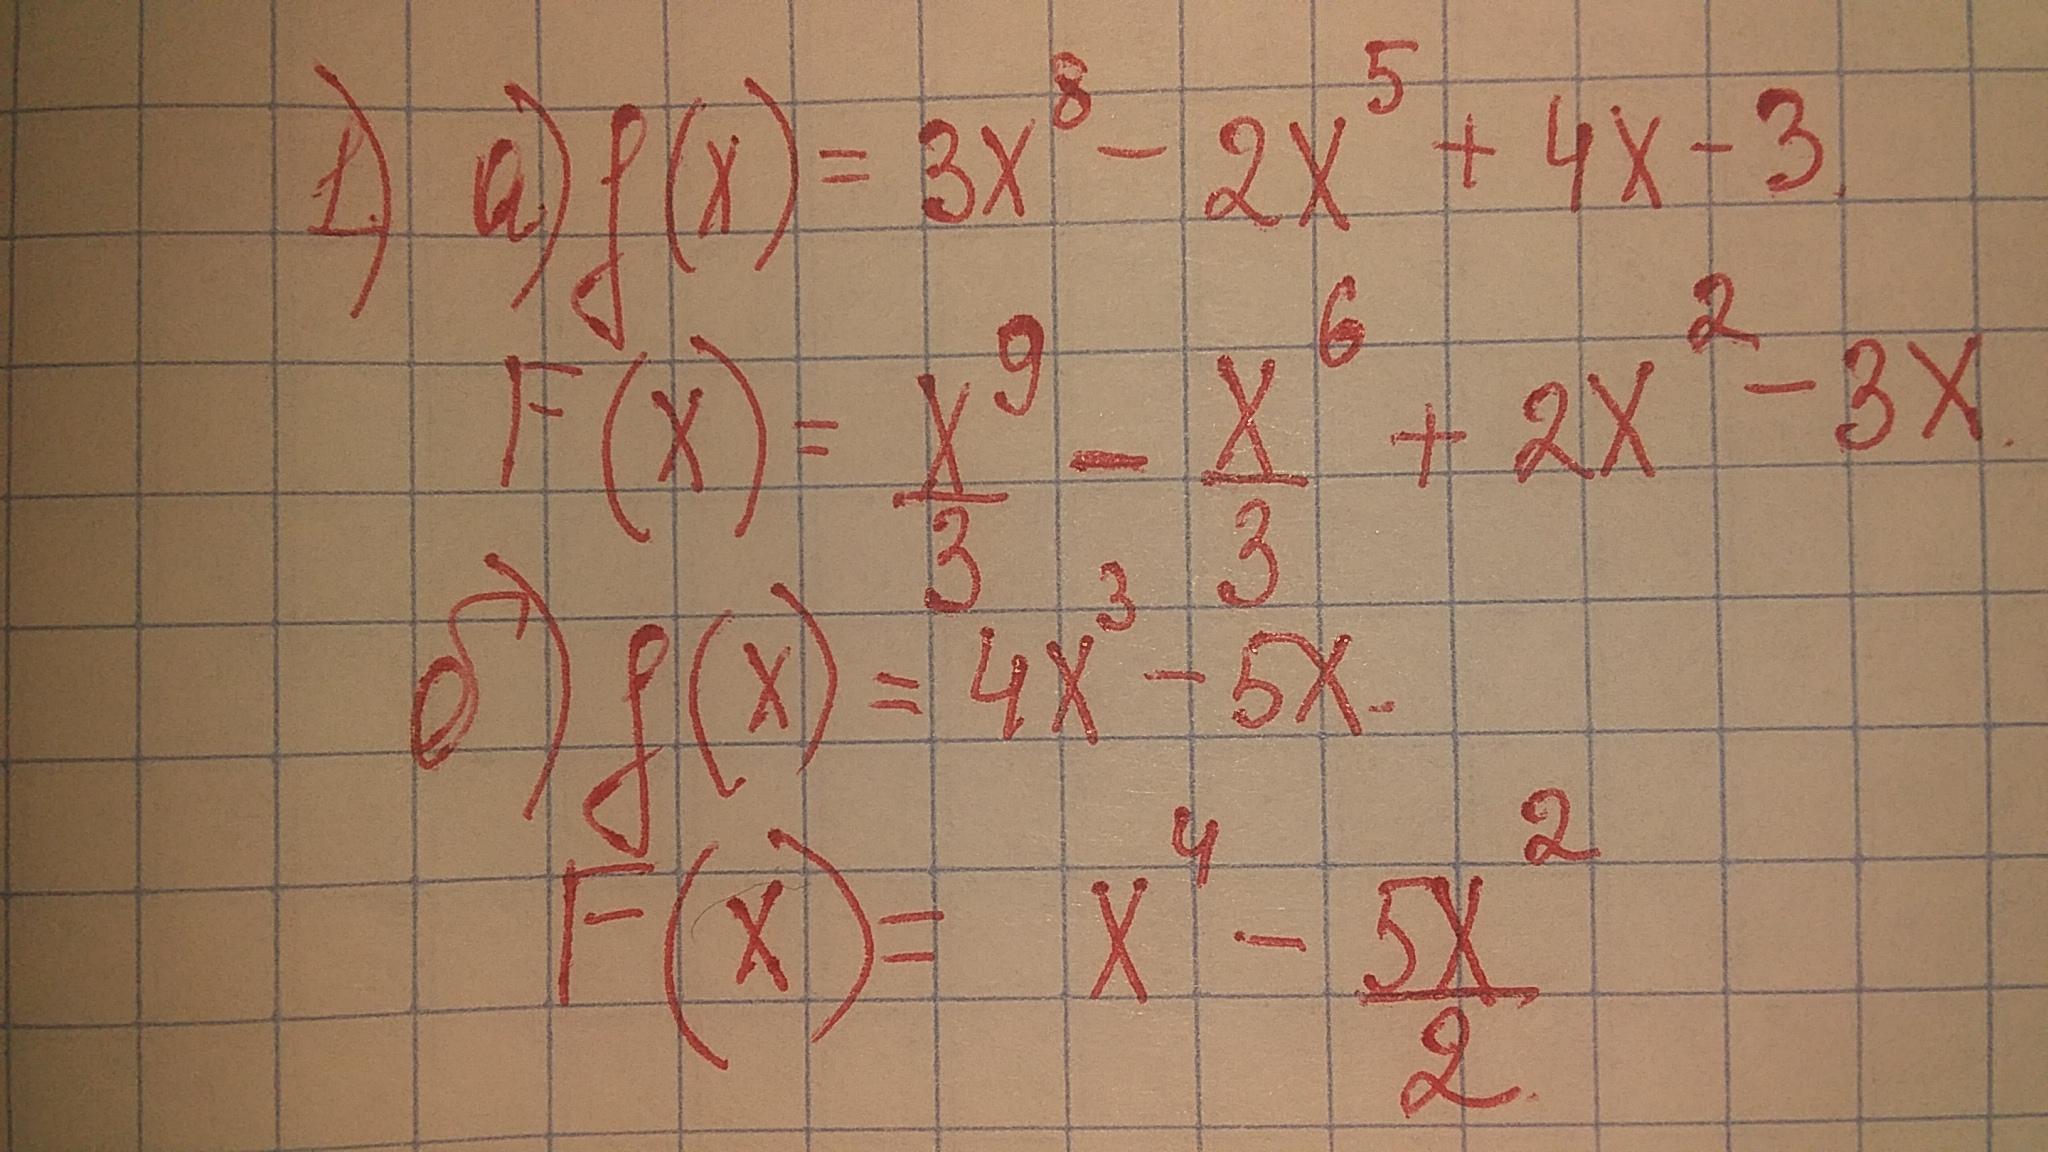 1) а) f(x) = 3x⁸ - 2x⁵ + 4x - 3.
F(x) = x⁹/3 - x⁶/3 + 2x² - 3x.
б) f(x) = 4x³ - 5x.
F(x) = x⁴ - 5x²/2.